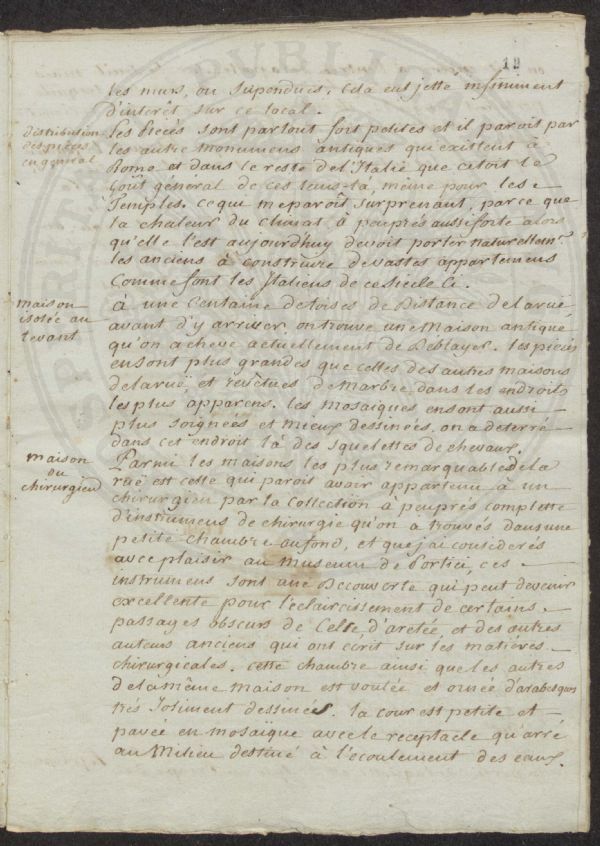 19
les murs, ou suspendues, cela eut jetté infiniment
d'interêt sur ce local.
distribution
des pièces
en general
les pièces sont partout fort petites et il paroit par
les autre monumens antiques qui existent à
Rome et dans le reste de l'Italie que c'etoit le
Goût général de ces tems-là, même pour les
Temples. ce qui me paroît surprenant, parce que
la chaleur du climat, à peuprés aussi forte alors
qu'elle l'est aujourd'huy devoit porter naturellemt.
les anciens à construire de vastes appartemens
comme font les Italiens de ce siecle ci.
maison
isolée au
levant
à une Centaine de toises de Distance de la rue
avant d'y arriver, on trouve une Maison antique
qu'on acheve actuellement de Deblayer. les pieces
en sont plus grandes que celles des autres maisons
de la rue, et revêtues de Marbre dans les endroits
les plus apparens. les mosaïques en sont aussi
plus soignées et mieux dessinées. on a déterré
dans cet endroit là des squelettes de chevaux.
maison
du
chirurgien
Parmi les maisons les plus remarquables de la
rüe est celle qui paroit avoir appartenu à un
chirurgien par la Collection à peuprés complette
d'instrumens de chirurgie qu'on a trouvés dans une
petite chambre au fond, et que j'ai considerés
avec plaisir au museum de Portici, ces
instrumens sont une Decouverte qui peut devenir
excellente pour l'éclaircissement de certains
passages obscurs de Celse, d'aretée, et des autres
auteurs anciens qui ont écrit sur les matières
chirurgicales. cette chambre ainsi que les autres
de la même maison est voutée et ornée d'arabesques
trés Joliment dessinés. la cour est petite et
pavée en mosaïque avec le receptacle qu'arré
au Milieu destiné à l'écoulement des eaux.